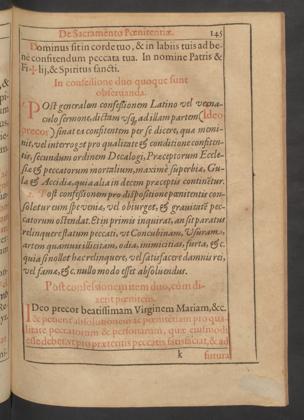 De Sacramento Pœnitentiæ. 145
Dominus sit in corde tuo, & in labiis tuis ad be-
ne confitendum peccata tua. In nomine Patris &
Fi✠lij, & Spiritus sancti.
In confessione duo quoque sunt
observanda.
Post generalem confessionem Latino vel verna-
culo sermone, dictam usq, ad illam partem (Ideo
precor) sinat ea confitentem per se dicere, qua memi-
nit, vel interroget pro qualitate & conditione confiten-
tis, secundum ordinem Decalogi, Præceptorum Eccle-
siæ & peccatorum mortalium, maximè superbiæ, Gu-
læ & Accidiæ, quia alia in decem præceptis continetur.
2. Post confessionem pro dispositione pœnitentis con-
soletur eum spe veniæ, vel obiurget, & gravitatē pec-
catorum ostendat. Et in primis inquirat, an sit paratus
relinquere statum peccati, ut Concubinam, Usuram,
artem quamvis illicitam, odia, inimicitias, furta, & c.
quia si nollet hæc relinquere, vel satisfacere damni rei,
vel famæ, & c. nullo modo esset absolvendus.
Post confessionem item duo, cùm di-
cent pœnitens.
IDeo precor beatissimam Virginem Mariam, &c.
& petient absolutionem ac pœnitentiam pro qua-
litate peccatorum & personarum, quæ eiusmodi
esse debet, ut pro præteritis peccatis satisfaciat, & ad
k futura